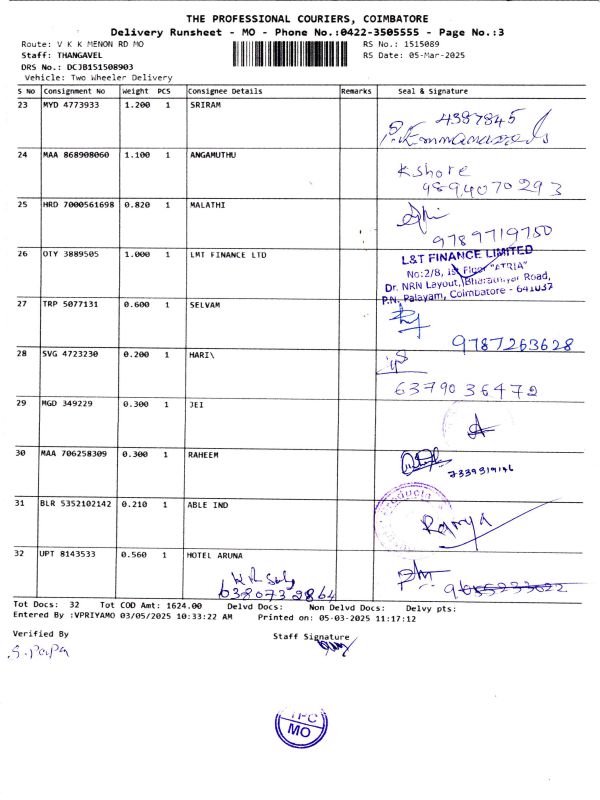 THE PROFESSIONAL COURIERS, COIMBATORE
Delivery Runsheet - MO - Phone No.:0422-3505555 - Page No.:3
Route: V K K MENON RD MO RS No.: 1515089
Staff: THANGAVEL RS Date: 05-Mar-2025
DRS No.: DCJB151508903
Vehicle: Two Wheeler Delivery
S No Consignment No Weight PCS Consignee Details Remarks Seal & Signature
23 MYD 4773933 1.200 1 SRIRAM
4397845
24 MAA 868908060 1.100 1 ANGAMUTHU
Kshore
9894070293
25 HRD 7000561698 0.820 1 MALATHI
9789719750
26 OTY 3889505 1.000 1 LMT FINANCE LTD
L&T FINANCE LIMITED
No:2/8, Ist Floor "ATRIA"
Dr. NRN Layout, Bharathiyar Road,
P.N. Palayam, Coimbatore - 641037
27 TRP 5077131 0.600 1 SELVAM
9787263628
28 SVG 4723230 0.200 1 HARI\
6379036472
29 MGD 349229 0.300 1 JEI
30 MAA 706258309 0.300 1 RAHEEM
7339319146
31 BLR 5352102142 0.210 1 ABLE IND
Ramya
32 UPT 8143533 0.560 1 HOTEL ARUNA
Tot Docs: 32 Tot COD Amt: 1624.00 Delvd Docs: Non Delvd Docs: Delvy pts:
Entered By :VPRIYAMO 03/05/2025 10:33:22 AM Printed on: 05-03-2025 11:17:12
Verified By Staff Signature
S. Papa
TPC
MO